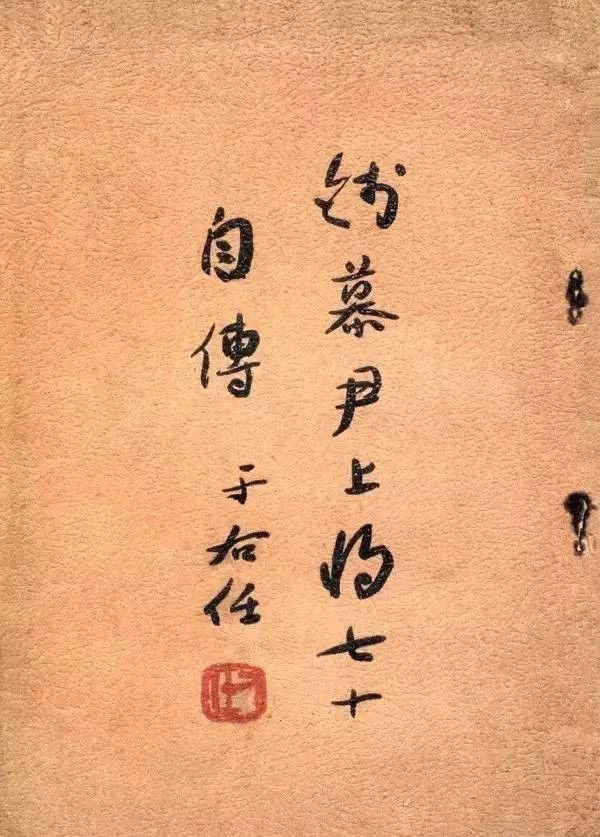 錢慕尹上將七十
自傳
于右任